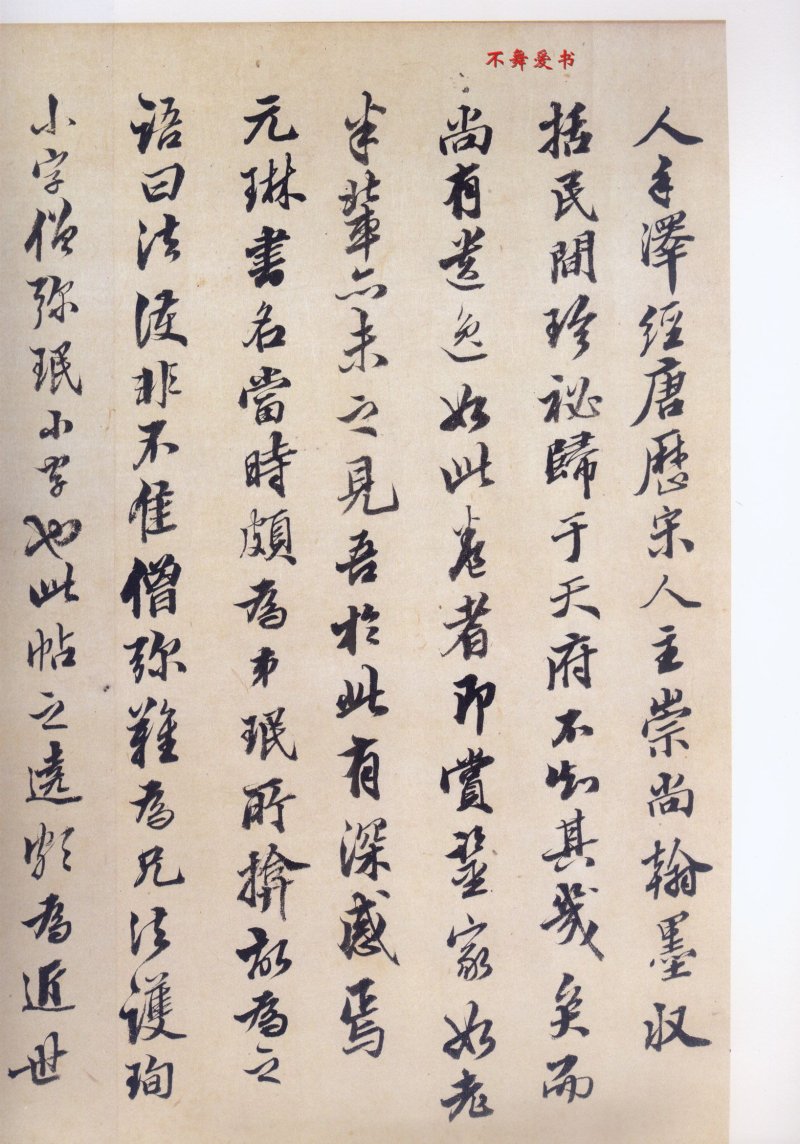 不舞爱书
人手澤經唐歷宋人主崇尚翰墨収
括民間珍祕歸于天府不知其幾矣而
尚有遺逸如此卷者即賞鑒家如老
米輩亦未之見吾於此有深感焉
元琳書名當時頗為弟珉所揜故為之
語曰法護非不佳僧弥難為兄法護珣
小字僧弥珉小字也此帖之為近世